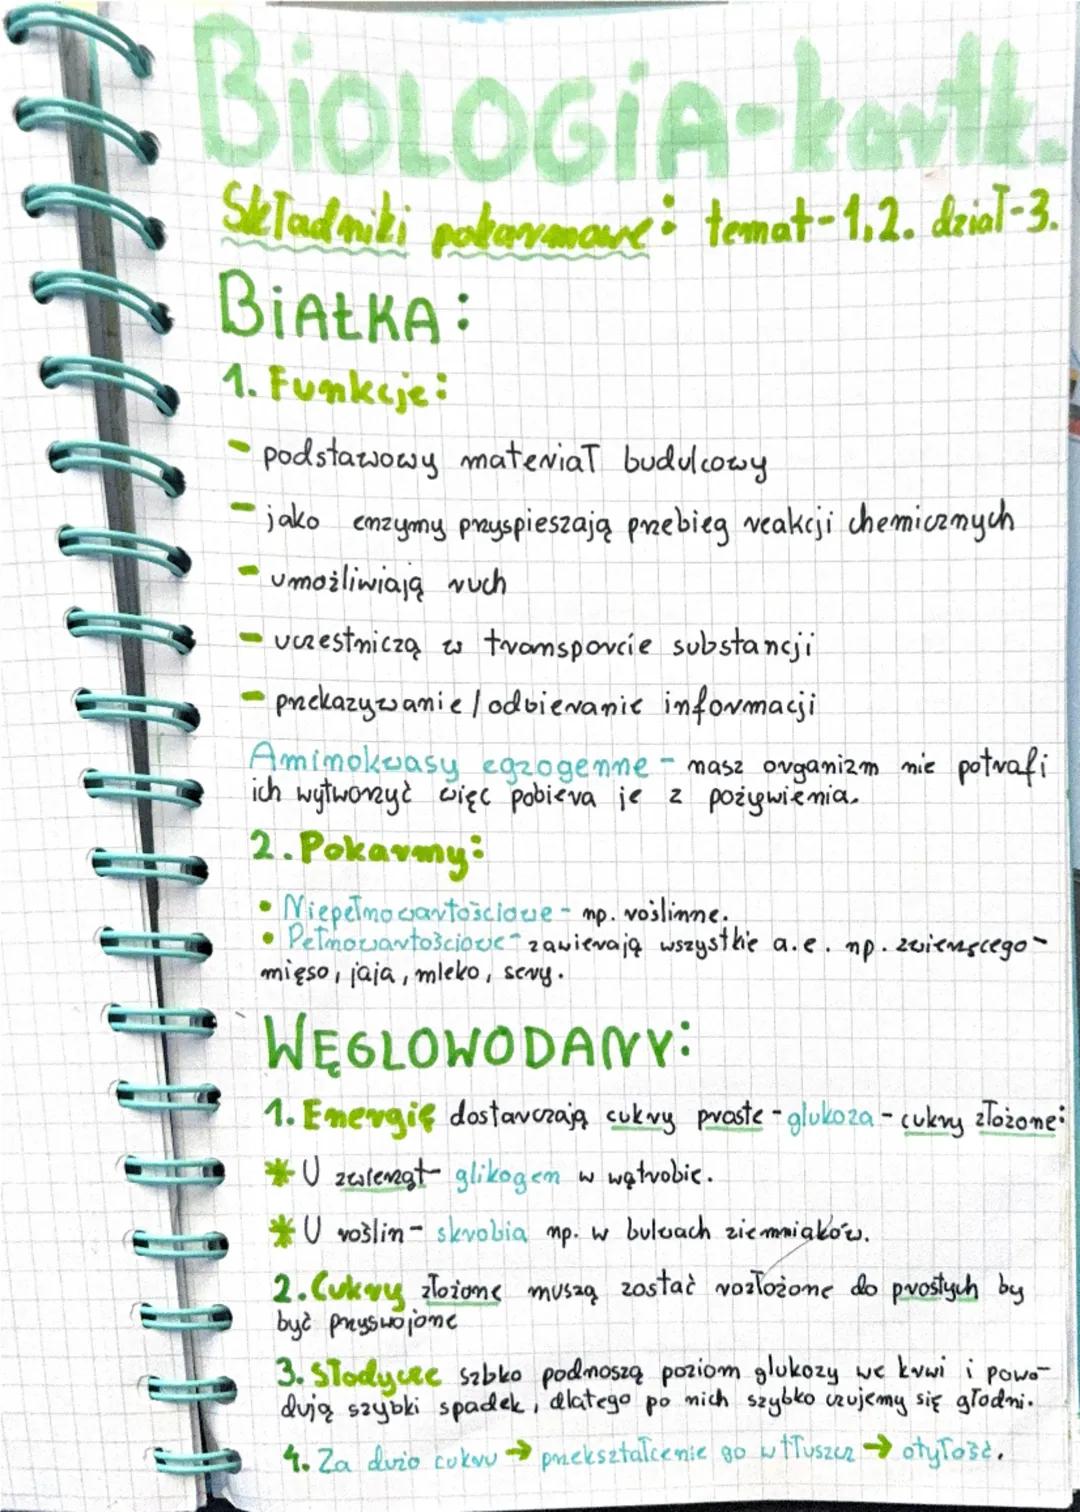 BIOLOGIA-kartk.
Składniki pokarmowe: temat-1,2. dział-3.
BIAŁKA:
1. Funkcje:
- podstawowy materiał budulcowy
- jako enzymy przyspieszają przebieg reakcji chemicznych
- umożliwiają ruch
- uczestniczą w transporcie substancji
- przekazywanie/odbieranie informacji
Aminokwasy egzogenne - nasz organizm nie potrafi
ich wytworzyć więc pobiera je z pożywienia.
2. Pokarmy:
• Niepełnowartościowe - np. roślinne.
• Pełnowartościowe - zawierają wszystkie a.e. np. zwierzęcego-
mięso, jaja, mleko, sery.
WĘGLOWODANY:
1. Energię dostarczają cukry proste - glukoza - cukry złożone:
* U zwierząt - glikogen w wątrobie.
* U roślin - skrobia np. w bulwach ziemniaków.
2. Cukry złożone muszą zostać rozłożone do prostych by
być przyswojone
3. Słodycze szbko podnoszą poziom glukozy we krwi i powo-
dują szybki spadek, dlatego po nich szybko czujemy się głodni.
4. Za dużo cukru → przekształcenie go w tłuszcz → otyłość.